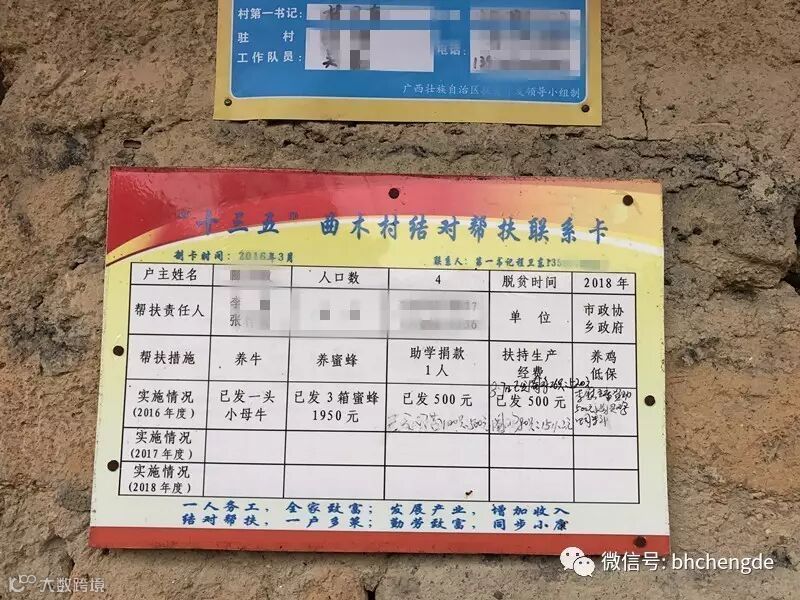 村第一书记:
驻 村
工作队员:
电话:
广西壮族自治区
领导小组制
"十三五" 曲木村结对帮扶联系卡
制卡时间: 2016年3月
联系人: 第一书记程卫东
户主姓名 人口数 4 脱贫时间 2018 年
帮扶责任人 李 张 单 位 市政协 乡政府
帮扶措施 养牛 养蜜蜂 助学捐款 1人 扶持生产 经费 养鸡 低保
实施情况 (2016 年度) 已发一头 小母牛 已发 3 箱蜜蜂 1950 元 已发 500 元 已发 500 元
实施情况 (2017 年度)
实施情况 (2018 年度)
一人务工, 全家致富; 发展产业, 增加收入
结对帮扶, 一户多策; 勤劳致富, 同步小康
微信号: bhchengde
大数跨境